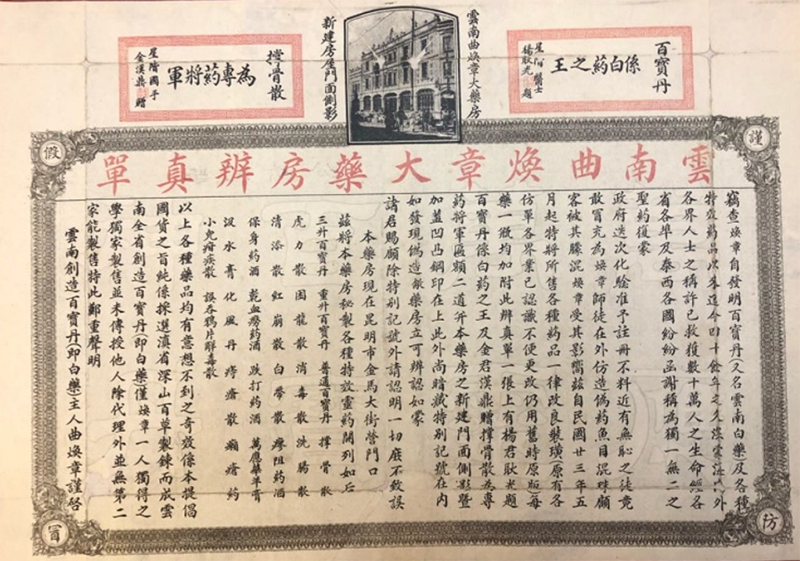 百寶丹
係白藥之王
星洲醫士
楊耿光 題
雲南曲煥章大藥房
新建房屋門面側影
撐骨散
為專藥將軍
星洲國手
金漢鼎 贈
謹
防
假
冒
雲南曲煥章大藥房辨真單
竊查煥章自發明百寶丹(又名雲南白藥)及各種
特效藥品以來迄今四十餘年之久
各界人士之稱許已救獲數十萬人之生命經各
省各埠及泰西各國紛紛函謝稱為獨一無二之
聖藥復蒙
政府迭次化驗准予註冊不料近有無恥之徒竟
敢冒充為煥章師徒在外仿造偽藥魚目混珠顧
客被其朦混煥章受其影響茲自民國廿三年五
月起特將所售各種藥品一律改良製璜原有各
仿單各界業已認識不便更改仍用舊時原版每
藥一瓶均加附此辨真單一張上有楊君耿光題
百寶丹係白藥之王及金君漢鼎贈撐骨散為專
藥將軍匾額二道并本藥房之新建門面側影暨
加蓋凹凸鋼印在上此外尚暗藏特別記號在內
如發現偽造敝藥房立可辨認如蒙
請君賜顧除特別記號外請認明一切庶不致誤
本藥房現在昆明市金馬大街營門口
茲將本藥房秘製各種特效靈藥開列如后
三升百寶丹 重升百寶丹 普通百寶丹 撐骨散
虎力散 困龍散 消毒散 洗腸散
清添散 紅崩散 白帶散 瘰阻藥酒
保身藥酒 乾血癆藥酒 跌打藥酒 萬應藥羊膏
汲水膏 化風丹 痔瘡散 癩瘡藥
小兒疳疾散 誤吞鴉片解毒散
以上各種藥品均有意想不到之奇效係本提倡
國貨之旨純係採選滇省深山百草製鍊而成雲
南全省創造百寶丹即白藥僅煥章一人獨得之
學獨家製售並未傳授他人除代理外並無第二
家能製售特此鄭重聲明
雲南創造百寶丹(即白藥)主人曲煥章謹啓